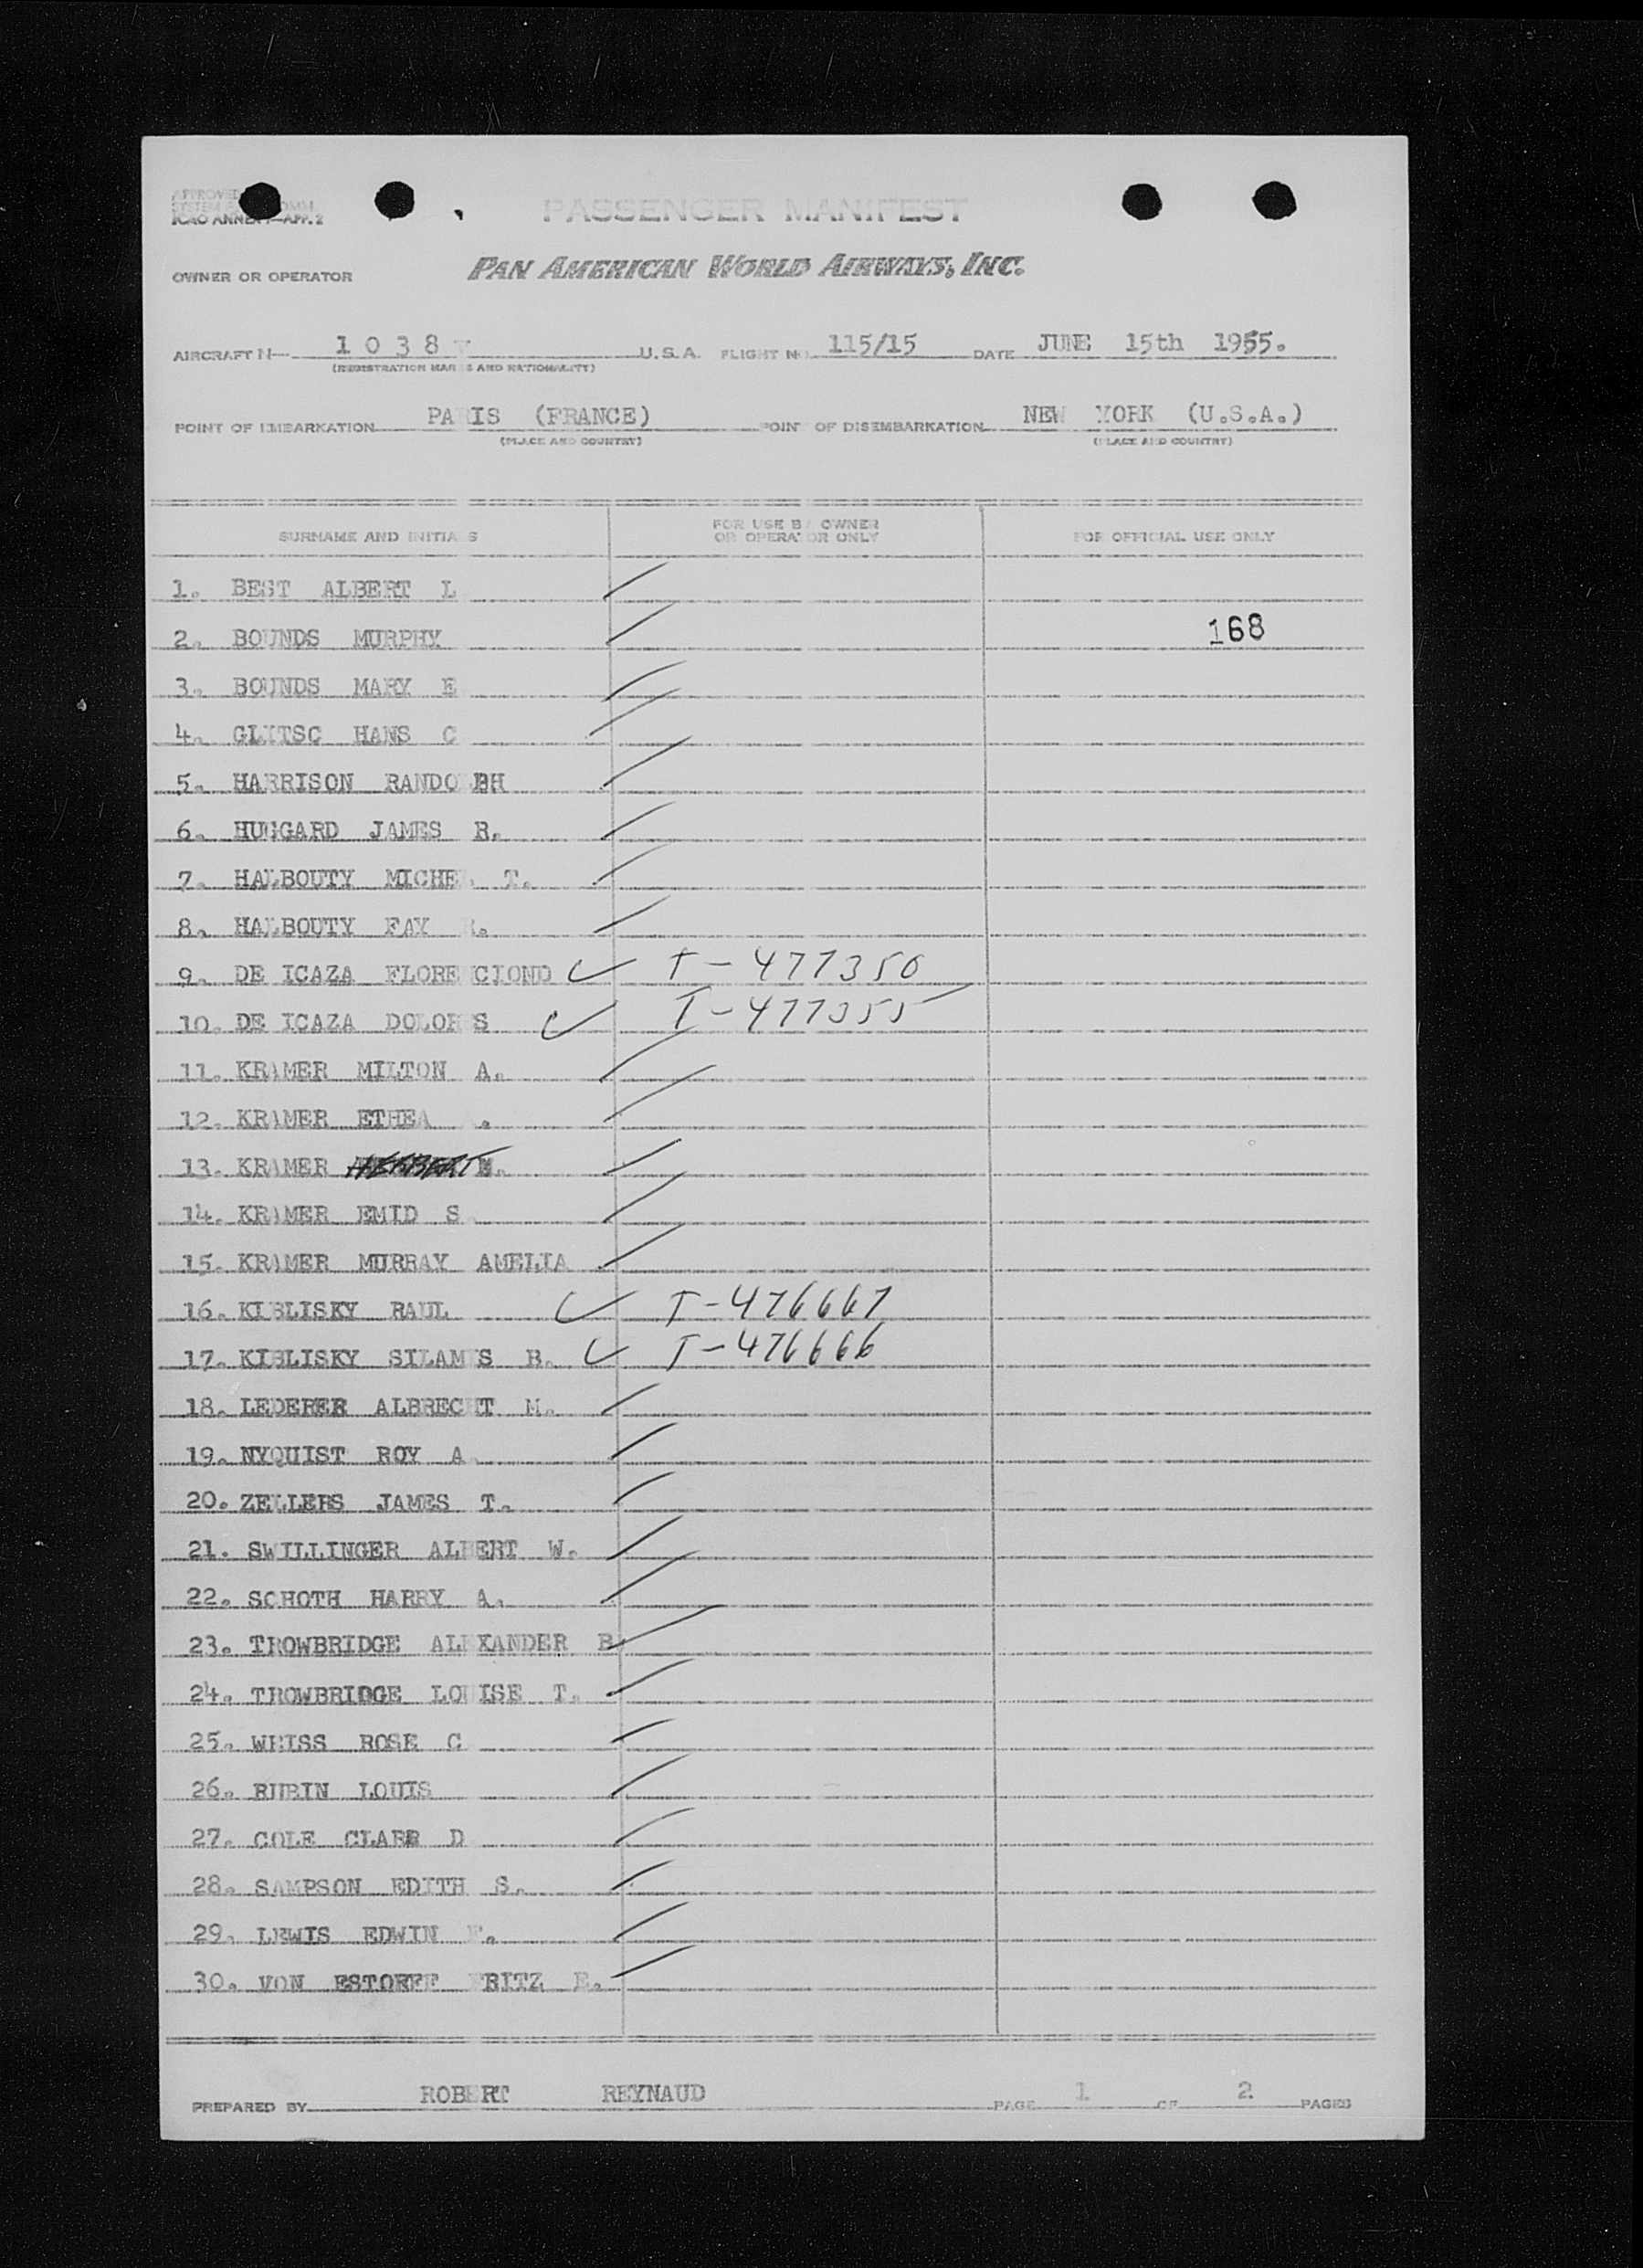 APPROVED
SYSTEM
ICAO ANNEX —APP. 2
PASSENGER MANIFEST
OWNER OR OPERATOR PAN AMERICAN WORLD AIRWAYS, INC.
AIRCRAFT N— 1 0 3 8 V U.S.A. FLIGHT NO. 115/15 DATE JUNE 15th 1955.
(REGISTRATION MARKS AND NATIONALITY)
POINT OF EMBARKATION PARIS (FRANCE) POINT OF DISEMBARKATION NEW YORK (U.S.A.)
(PLACE AND COUNTRY) (PLACE AND COUNTRY)
SURNAME AND INITIALS FOR USE BY OWNER OR OPERATOR ONLY FOR OFFICIAL USE ONLY
1. BEST ALBERT L
2. BOUNDS MURPHY 168
3. BOUNDS MARY E
4. HANS C
5. HARRISON RANDOLPH
6. HUGGARD JAMES R.
7. HALBOUTY MICHEL T.
8. HALBOUTY FAY
9. DE ICAZA T-477350
10. DE ICAZA DOLORES T-477355
11. KRAMER MILTON A.
12. KRAMER ETHEA
13. KRAMER HERBERT
14. KRAMER EMID S
15. KRAMER MURRAY AMELIA
16. KIBLISKY RAUL T-476667
17. KIBLISKY SILAMES B. T-476666
18. LEDERER ALBRECHT M.
19. NYQUIST ROY A
20. ZELLERS JAMES T.
21. SWILLINGER ALBERT W.
22. SCHOTH HARRY A.
23. TROWBRIDGE ALEXANDER B
24. TROWBRIDGE LOUISE T.
25. WEISS ROSE C
26. RUBIN LOUIS
27. COLE CLARE D
28. SAMPSON EDITH S.
29. LEWIS EDWIN F.
30. VON ESTORFF FRITZ E.
PREPARED BY ROBERT REYNAUD PAGE 1 OF 2 PAGES